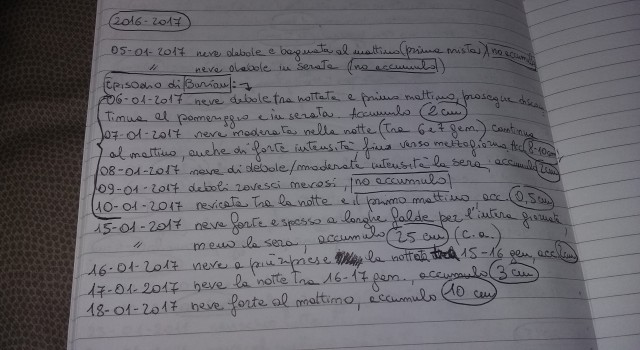 2016-2017
05-01-2017 neve debole e bagnata al mattino (prima mista) no accumulo
" neve debole in serata (no accumulo)
Episodio di Burian:
06-01-2017 neve debole tra nottata e primo mattino, prosegue
tinua al pomeriggio e in serata. Accumulo 2 cm
07-01-2017 neve moderata nella notte (tra 6 e 7 gen.) continua
al mattino, anche di forte intensità fino verso mezzogiorno, acc 8-10 cm
08-01-2017 neve di debole/moderata intensità la sera, accumulo 2 cm
09-01-2017 deboli rovesci nevosi, no accumulo
10-01-2017 nevicata tra la notte e il primo mattino, acc. 0,5 cm
15-01-2017 neve forte e spesso a larghe falde per l'intera giornata,
" meno la sera, accumulo 25 cm (c.a.)
16-01-2017 neve a più riprese la nottata 15-16 gen, acc
17-01-2017 neve la notte tra 16-17 gen., accumulo 3 cm
18-01-2017 neve forte al mattino, accumulo 10 cm